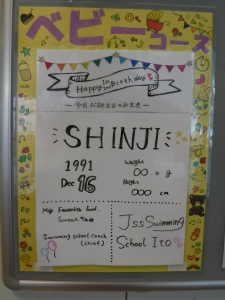 ベビーコース
Happy 1st 2nd Birthday
今月お誕生日のお友達
SHINJI
1991
Dec 16
Weight
00.0g
Height
000 cm
My Favorite food.
Sweet
Swimming school coach
(chief)
JssSwimming
School Ito